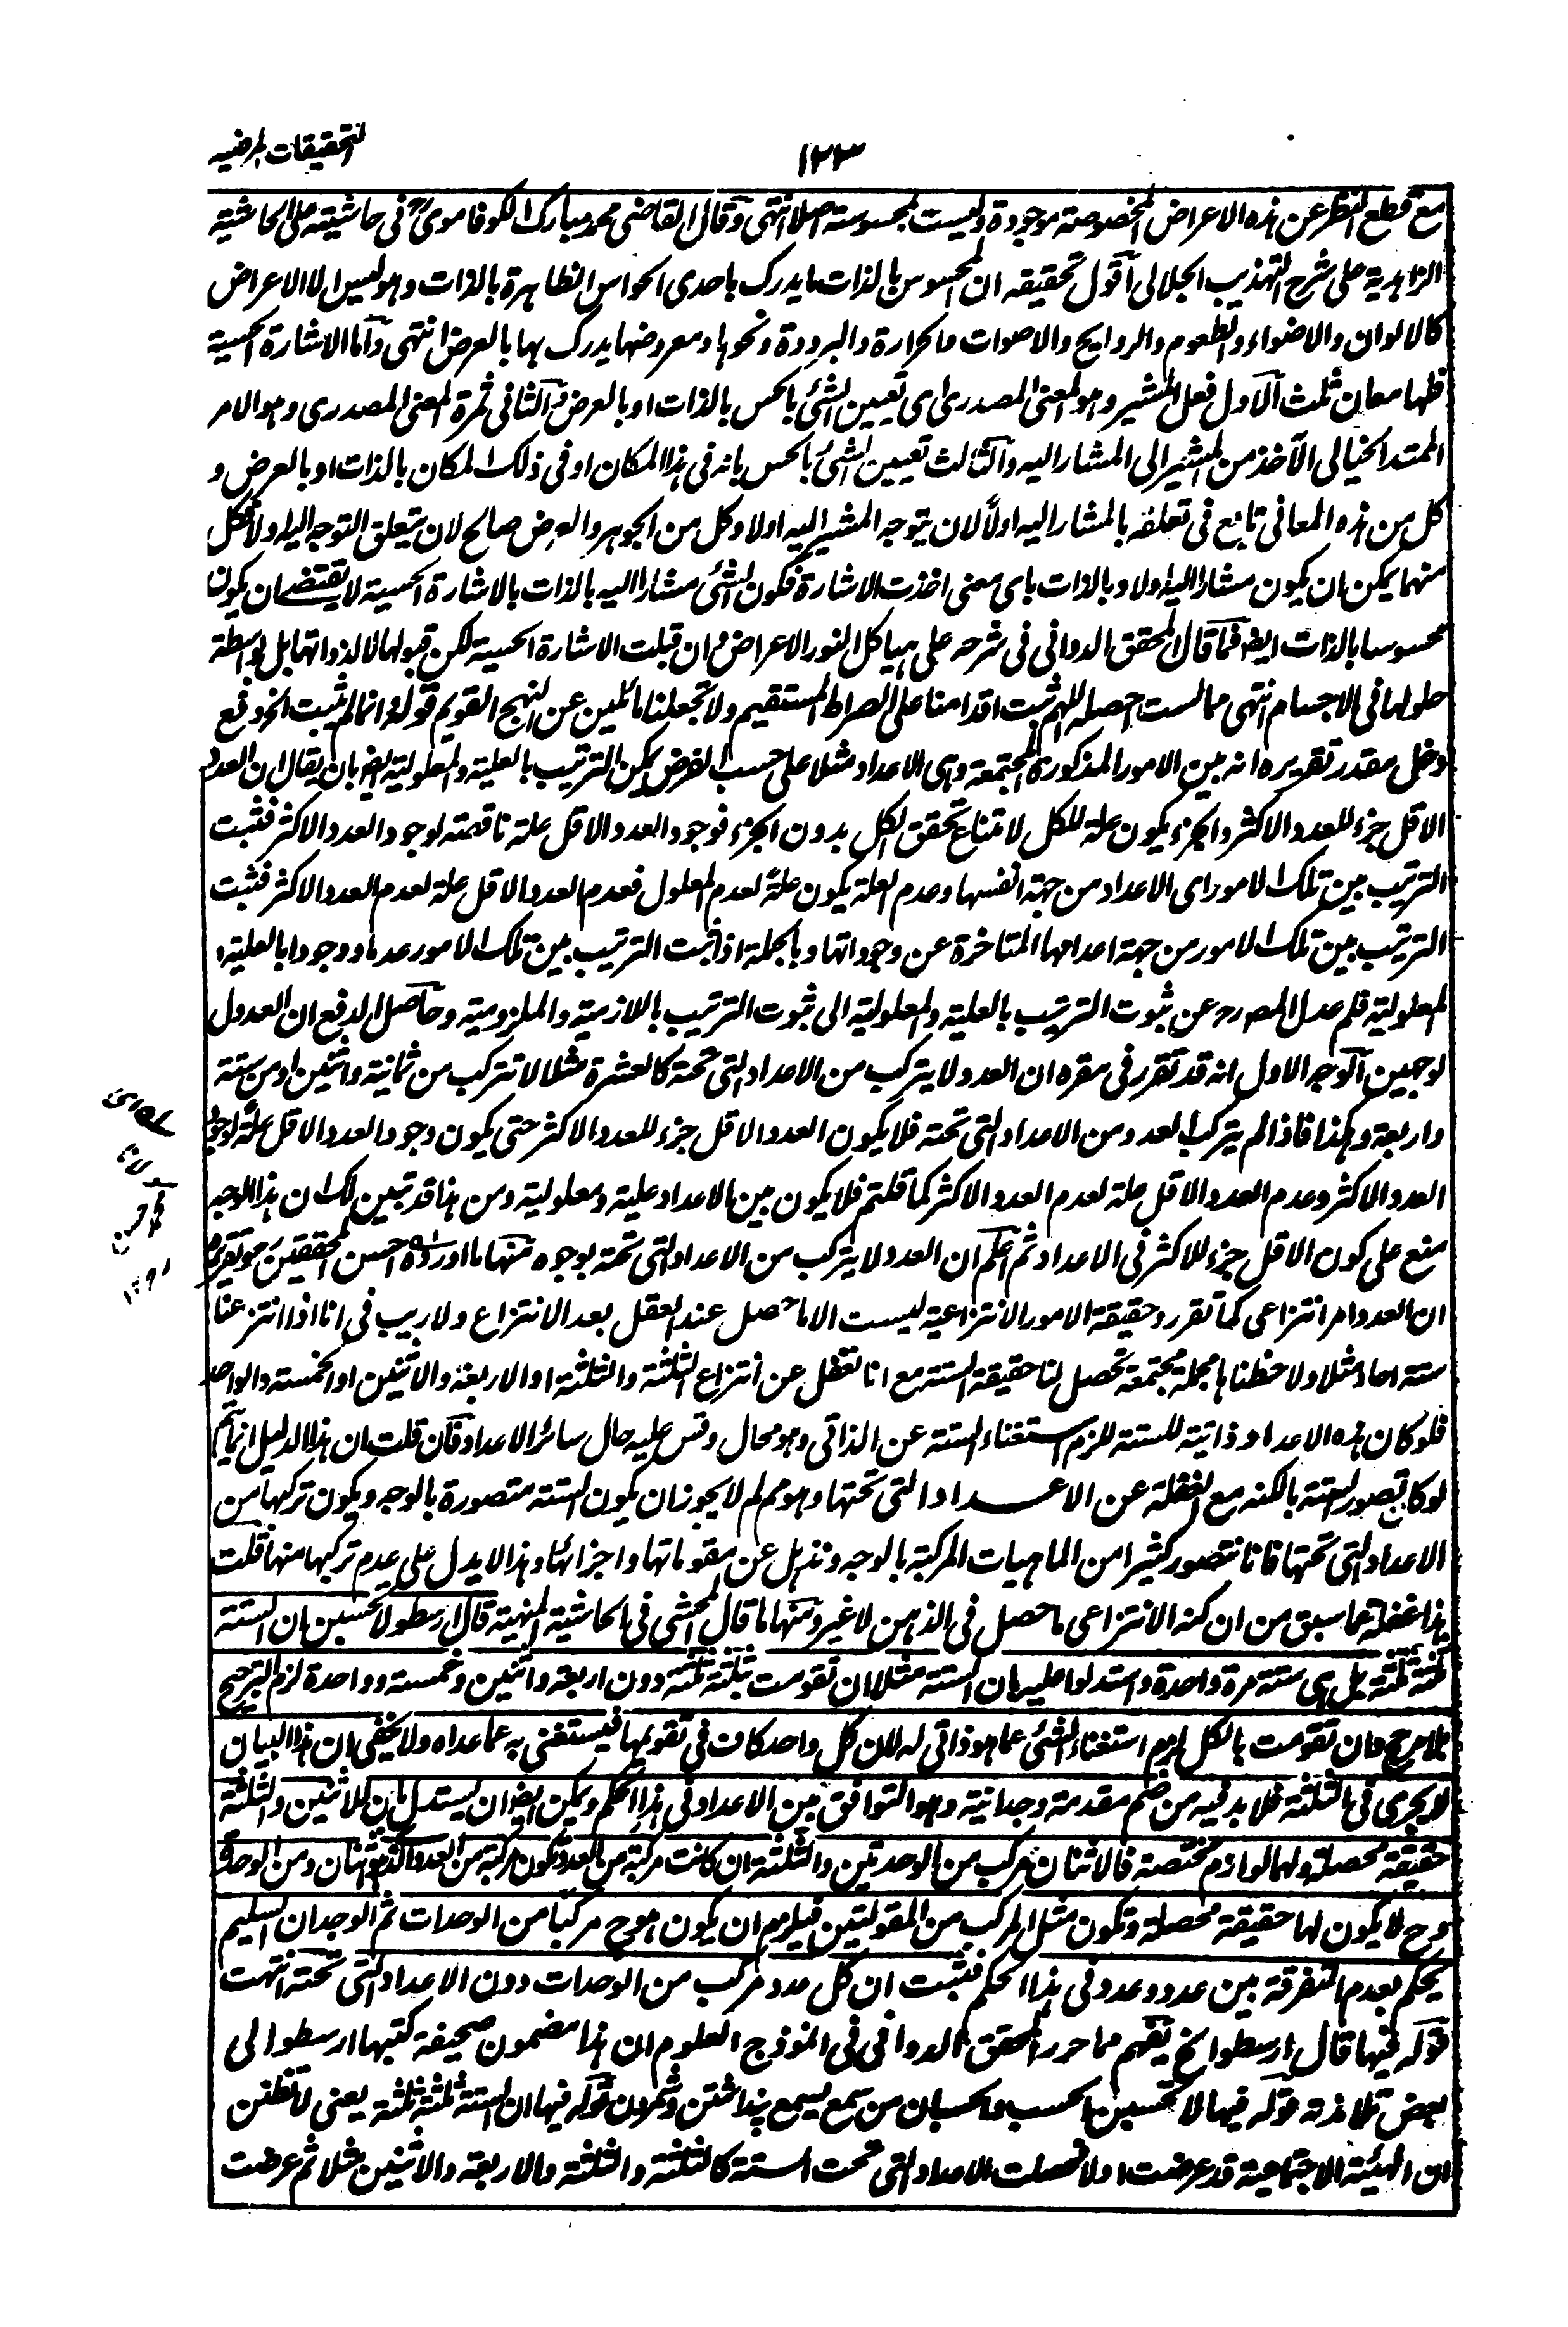 التحقيقات المرضیہ
١٢٣
مع قطع النظر عن ہذہ الاعراض المخصوصۃ موجودۃ ولیست بمحسوسۃ اصلا انتہی وقال القاضی محمد مبارک الکوفاموی فی حاشیتہ علی الحاشیۃ
الزاہدیۃ علی شرح التہذیب الجلالی اقول تحقیقہ ان المحسوس بالذات ما یدرک باحدی الحواس الظاہرۃ بالذات وہو لیس الا الاعراض
کالالوان والاضواء والطعوم والروایح والاصوات والحرارۃ والبرودۃ ونحوہا ومعروضہا یدرک بہا بالعرض انتہی وآما الاشارۃ الحسیۃ
فلہا معان ثلث الاول فعل المشیر وہو المعنی المصدری ای تعیین الشئ بالحس بالذات او بالعرض والثانی ثمرۃ المعنی المصدری وہو الامر
الممتد الخیالی الآخذ من المشیر الی المشار الیہ والثالث تعیین الشئ بالحس بانہ فی ہذا المکان او فی ذلک المکان بالذات او بالعرض و
کل من ہذہ المعانی تابع فی تعلقہ بالمشار الیہ اولاً لان یتوجہ المشیر الیہ اولا وکل من الجوہر والعرض صالح لان یتعلق التوجہ الیہ اولا فکل
منہما یمکن ان یکون مشارا الیہ اولا وبالذات بای معنی اخذت الاشارۃ فکون الشئ مشارا الیہ بالذات بالاشارۃ الحسیۃ لا یقتضی ان یکون
محسوسا بالذات ایضا فما قال المحقق الدوانی فی شرحہ علی ہیاکل النور الاعراض وان قبلت الاشارۃ الحسیۃ لکن قبولہا لا لذواتہا بل بواسطۃ
حلولہا فی الاجسام انتہی مما لست احصلہ اللہم ثبت اقدامنا علی الصراط المستقیم ولا تجعلنا مائلین عن النہج القویم قولہ انما لم یثبت الخ دفع
دخل مقدر تقریرہ انہ بین الامور المذکورۃ المجتمعۃ وہی الاعداد مثلا علی حسب الفرض یمکن الترتیب بالعلیۃ والمعلولیۃ ایضا بان یقال ان العدد
الاقل جزء للعدد الاکثر والجزء یکون علۃ للکل لامتناع تحقق الکل بدون الجزء فوجود العدد الاقل علۃ ناقصۃ لوجود العدد الاکثر فثبت
الترتیب بین تلک الامور ای الاعداد من جہۃ انفسہا وعدم العلۃ یکون علۃً لعدم المعلول فعدم العدد الاقل علۃ لعدم العدد الاکثر فثبت
الترتیب بین تلک الامور من جہۃ اعدامہا المتاخرۃ عن وجوداتہا وبالجملۃ اذا ثبت الترتیب بین تلک الامور عدما ووجودا بالعلیۃ و
المعلولیۃ فلم عدل المصرح عن ثبوت الترتیب بالعلیۃ والمعلولیۃ الی ثبوت الترتیب باللازمیۃ والملزومیۃ وحاصل الدفع ان العدول
لوجہین الوجہ الاول انہ قد تقرر فی مقرہ ان العدد لا یترکب من الاعداد التی تحتہ کالعشرۃ مثلا لا تترکب من ثمانیۃ واثنین او من ستۃ
واربعۃ وہکذا فاذا لم یترکب العدد من الاعداد التی تحتہ فلا یکون العدد الاقل جزء للعدد الاکثر حتی یکون وجود العدد الاقل علۃ لوجود
العدد الاکثر وعدم العدد الاقل علۃ لعدم العدد الاکثر کما قلتم فلا یکون بین الاعداد علیۃ ومعلولیۃ ومن ہنا قد تبین لک ان ہذا الوجہ
منع علی کون الاقل جزء للاکثر فی الاعداد ثم اعلم ان العدد لا یترکب من الاعداد التی تحتہ بوجوہ منہا ما اوردہ احسن المحققین
ان العدد امر انتزاعی کما تقرر وحقیقۃ الامور الانتزاعیۃ لیست الا ما حصل عند العقل بعد الانتزاع ولا ریب فی انا اذا انتزعنا
ستۃ احاد مثلا ولاحظناہا مجملۃ مجتمعۃ تحصل لنا حقیقۃ الستۃ مع انا نغفل عن انتزاع الثلثۃ والثلثۃ او الاربعۃ والاثنین او الخمسۃ والواحد
فلو کان ہذہ الاعداد ذاتیۃ للستۃ للزم استغناء الستۃ عن الذاتی وہو محال وقس علیہ حال سائر الاعداد فان قلت ان ہذا الدلیل انما یتم
لو کان تصور الستۃ بالکنہ مع الغفلۃ عن الاعداد التی تحتہا وہو مم لم لا یجوز ان یکون الستۃ متصورۃ بالوجہ ویکون ترکبہا من
الاعداد التی تحتہا فانا نتصور کثیرا من الماہیات المرکبۃ بالوجہ ونذہل عن مقوماتہا واجزائہا وہذا لا یدل علی عدم ترکبہا منہا قلت
ہذا غفلۃ عما سبق من ان کنہ الانتزاعی ما حصل فی الذہن لا غیر ومنہا ما قال المحشی فی الحاشیۃ المنہیۃ قال ارسطو لا تحسبن ان الستۃ
ثلثۃ ثلثۃ بل ہی ستۃ مرۃ واحدۃ واستدلوا علیہ بان الستۃ مثلا ان تقومت بثلثۃ ثلثۃ دون اربعۃ واثنین وخمسۃ وواحدۃ لزم الترجیح
بلا مرجح وان تقومت بالکل لزم استغناء الشئ عما ہو ذاتی لہ لان کل واحد کاف فی تقویمہا فیستغنی بہ عما عداہ ولا یخفی ان ہذا البیان
لا یجری فی الثلثۃ فلا بد فیہ من ضم مقدمۃ وجدانیۃ وہو التوافق بین الاعداد فی ہذا الحکم ویمکن ایضا ان یستدل بان للاثنین والثلثۃ
حقیقۃ محصلۃ ولہما لوازم مختصۃ فالاثنان مرکب من الوحدتین والثلثۃ ان کانت مرکبۃ من العدد تکون مرکبۃ من العدد الذی ہو اثنان ومن الوحدۃ
وح لا یکون لہا حقیقۃ محصلۃ وتکون مثل المرکب من المقولتین فیلزم ان یکون ہو ح مرکبا من الوحدات ثم الوجدان السلیم
یحکم بعدم التفرقۃ بین عدد وعدد فی ہذا الحکم فثبت ان کل عدد مرکب من الوحدات دون الاعداد التی تحتہ انتہت
قولہ فیہا قال ارسطو الخ یفہم مما حرر المحقق الدوانی فی انموذج العلوم ان ہذا مضمون صحیفۃ کتبہا ارسطو الی
بعض تلامذتہ قولہ فیہا لا تحسبن الحسب والحسبان من سمع یسمع پنداشتن وشمردن قولہ فیہا ان الستۃ ثلثۃ ثلثۃ یعنی لا تظنن
ان الہیئۃ الاجتماعیۃ قد عرضت اولا فحصلت الاعداد التی تحت الستۃ کالثلثۃ والثلثۃ والاربعۃ والاثنین مثلا ثم عرضت